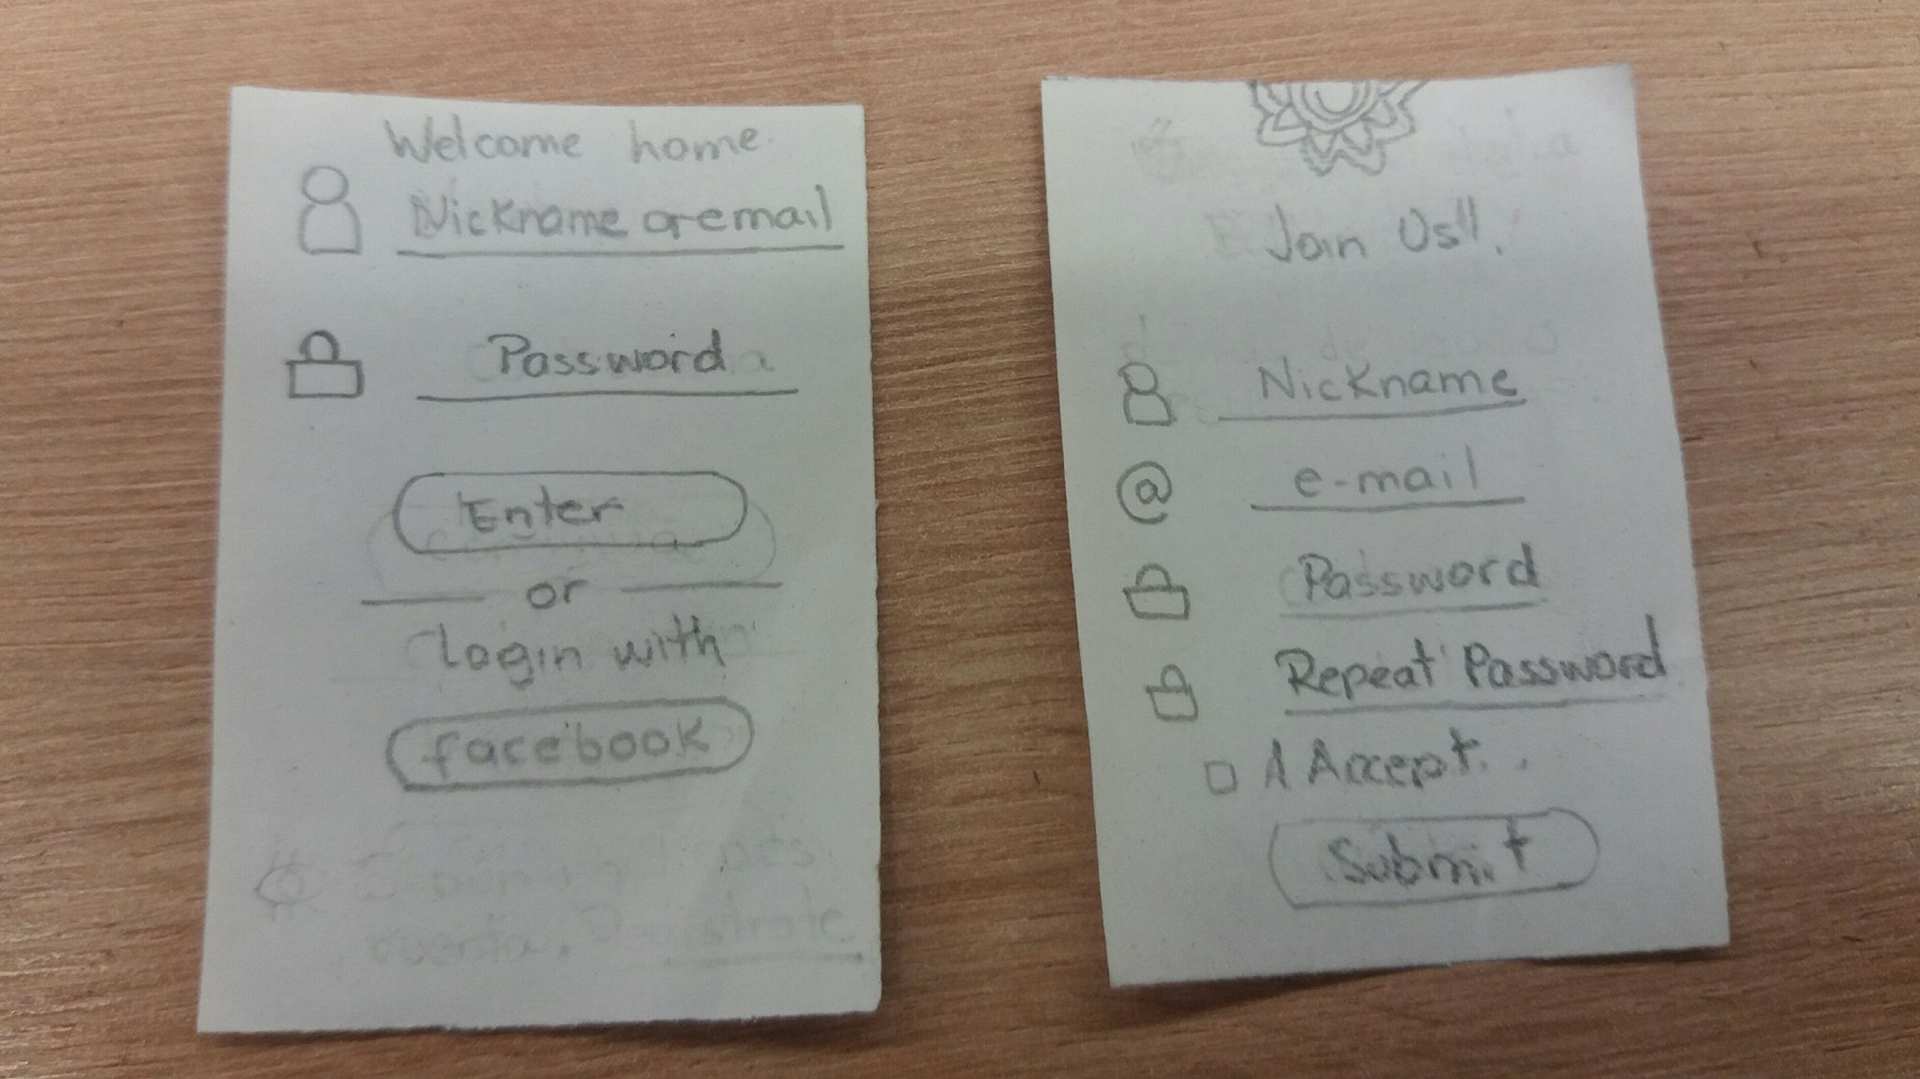 Welcome home.
Nickname or email
Password
Enter
or
login with
facebook
cuenta.
Join Us!!.
Nickname
@ e-mail
Password
Repeat Password
A Accept..
Submit